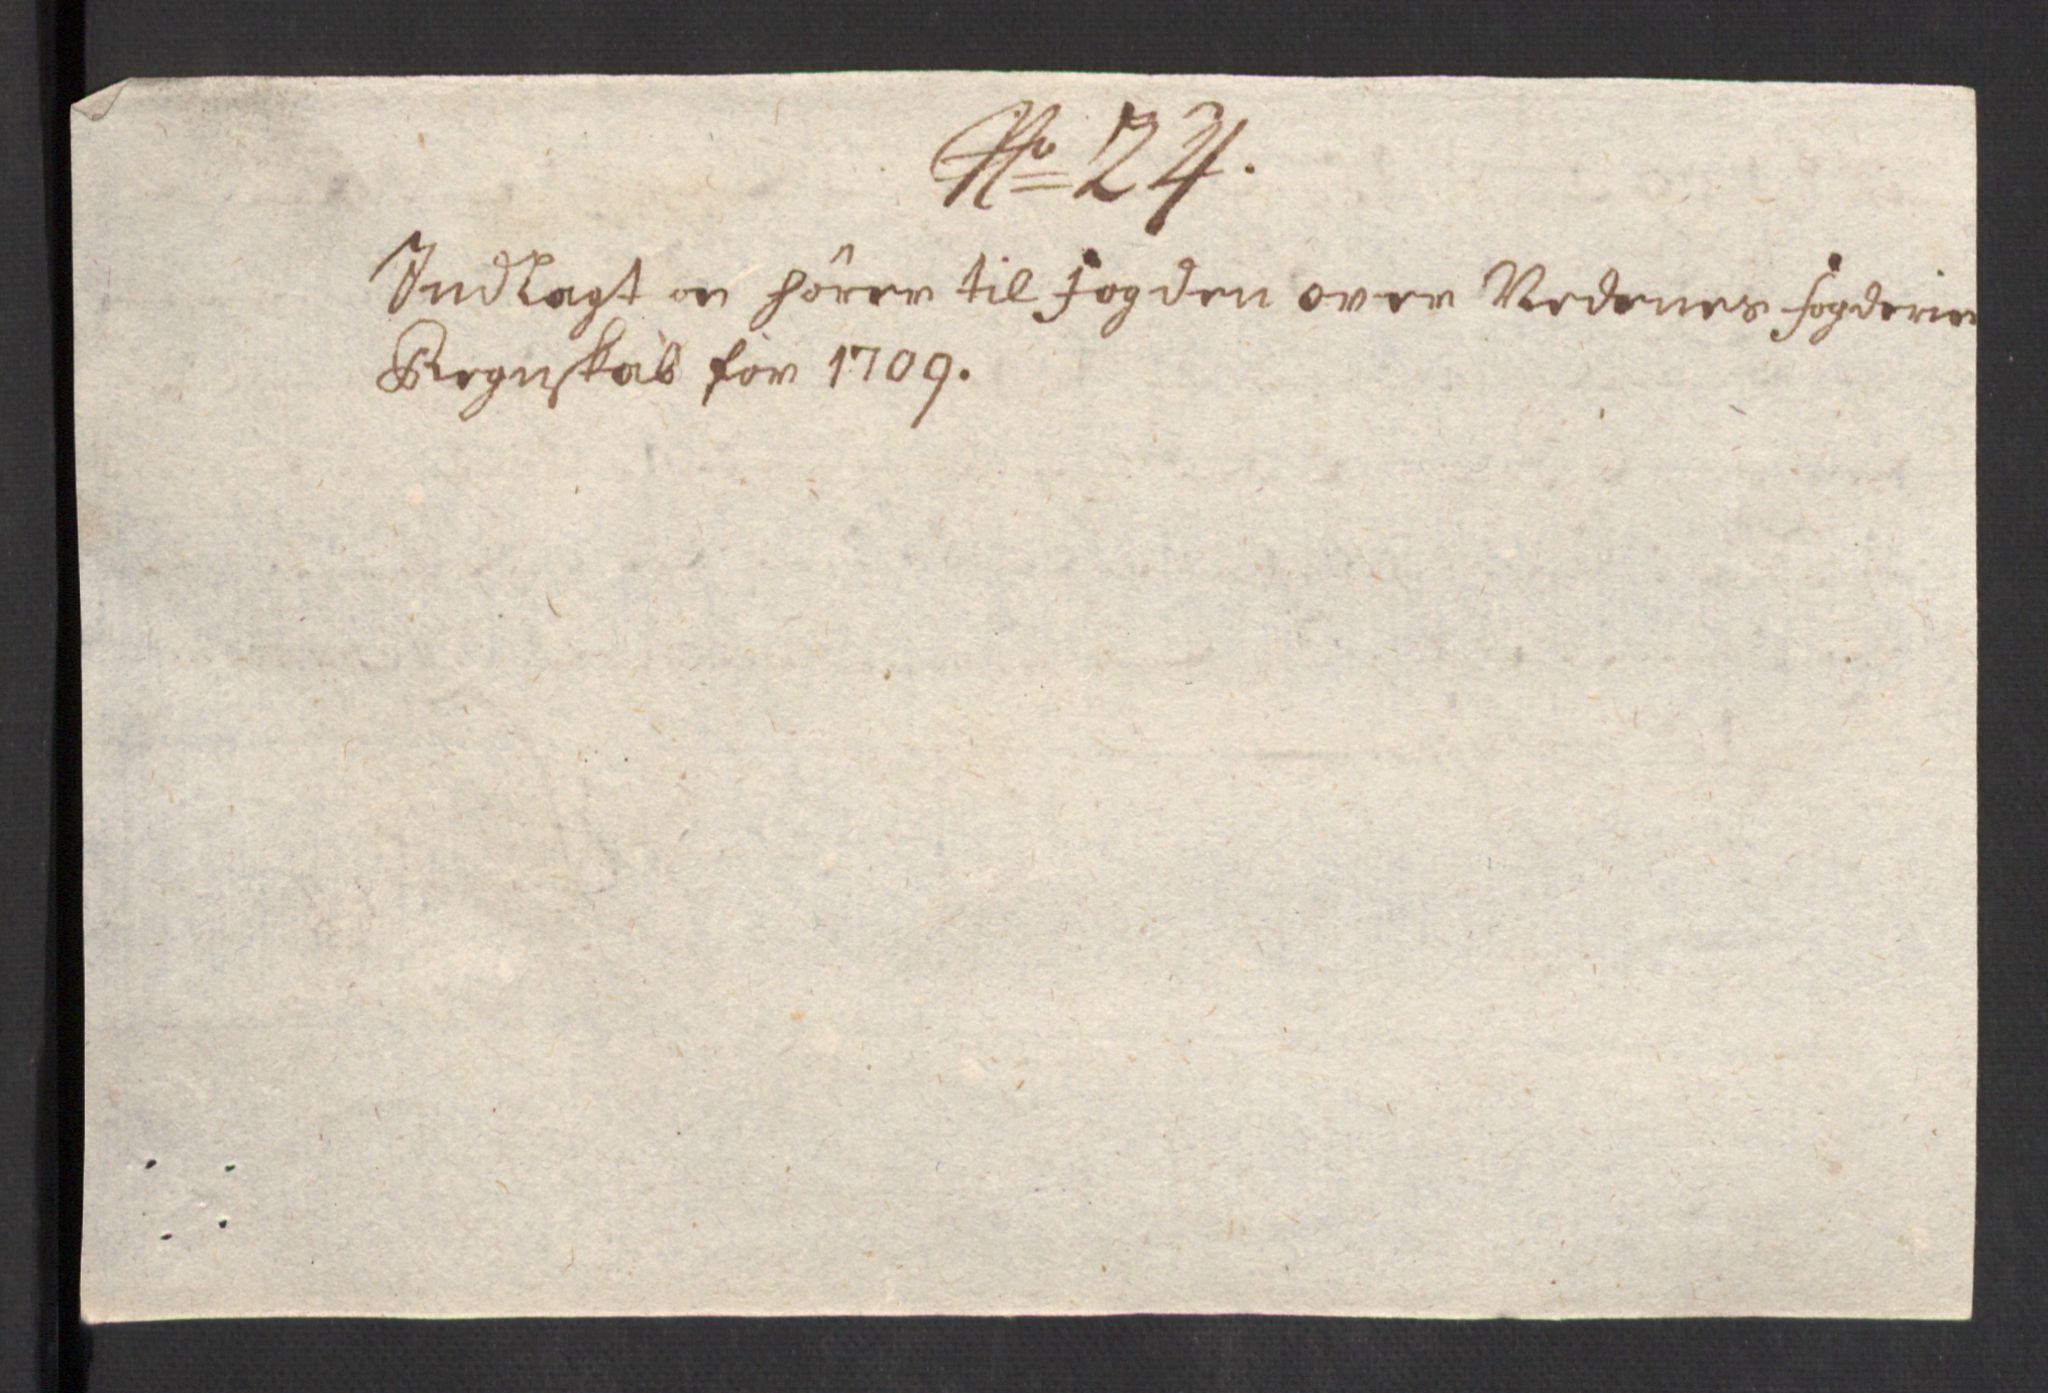 No 24.
Indlagt er hörer til fogden over Nedenes fogderies
Regnskab for 1709.